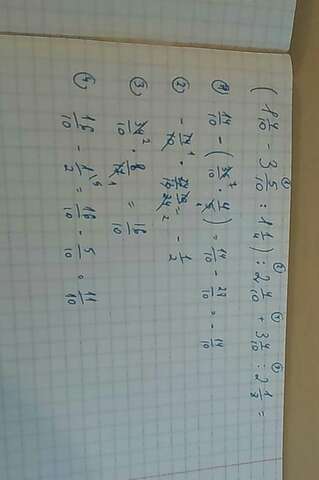 ( 1 4/10 - 3 5/10 : 1 1/4 ) : 2 8/10 + 3 4/10 : 2 1/8 =
① 14/10 - ( 35/10 · 4/5 ) = 14/10 - 28/10 = - 14/10
② - 14/10 · 10/28 = - 1/2
③ 34/10 · 8/17 = 16/10
④ 16/10 - 1/2 = 16/10 - 5/10 = 11/10